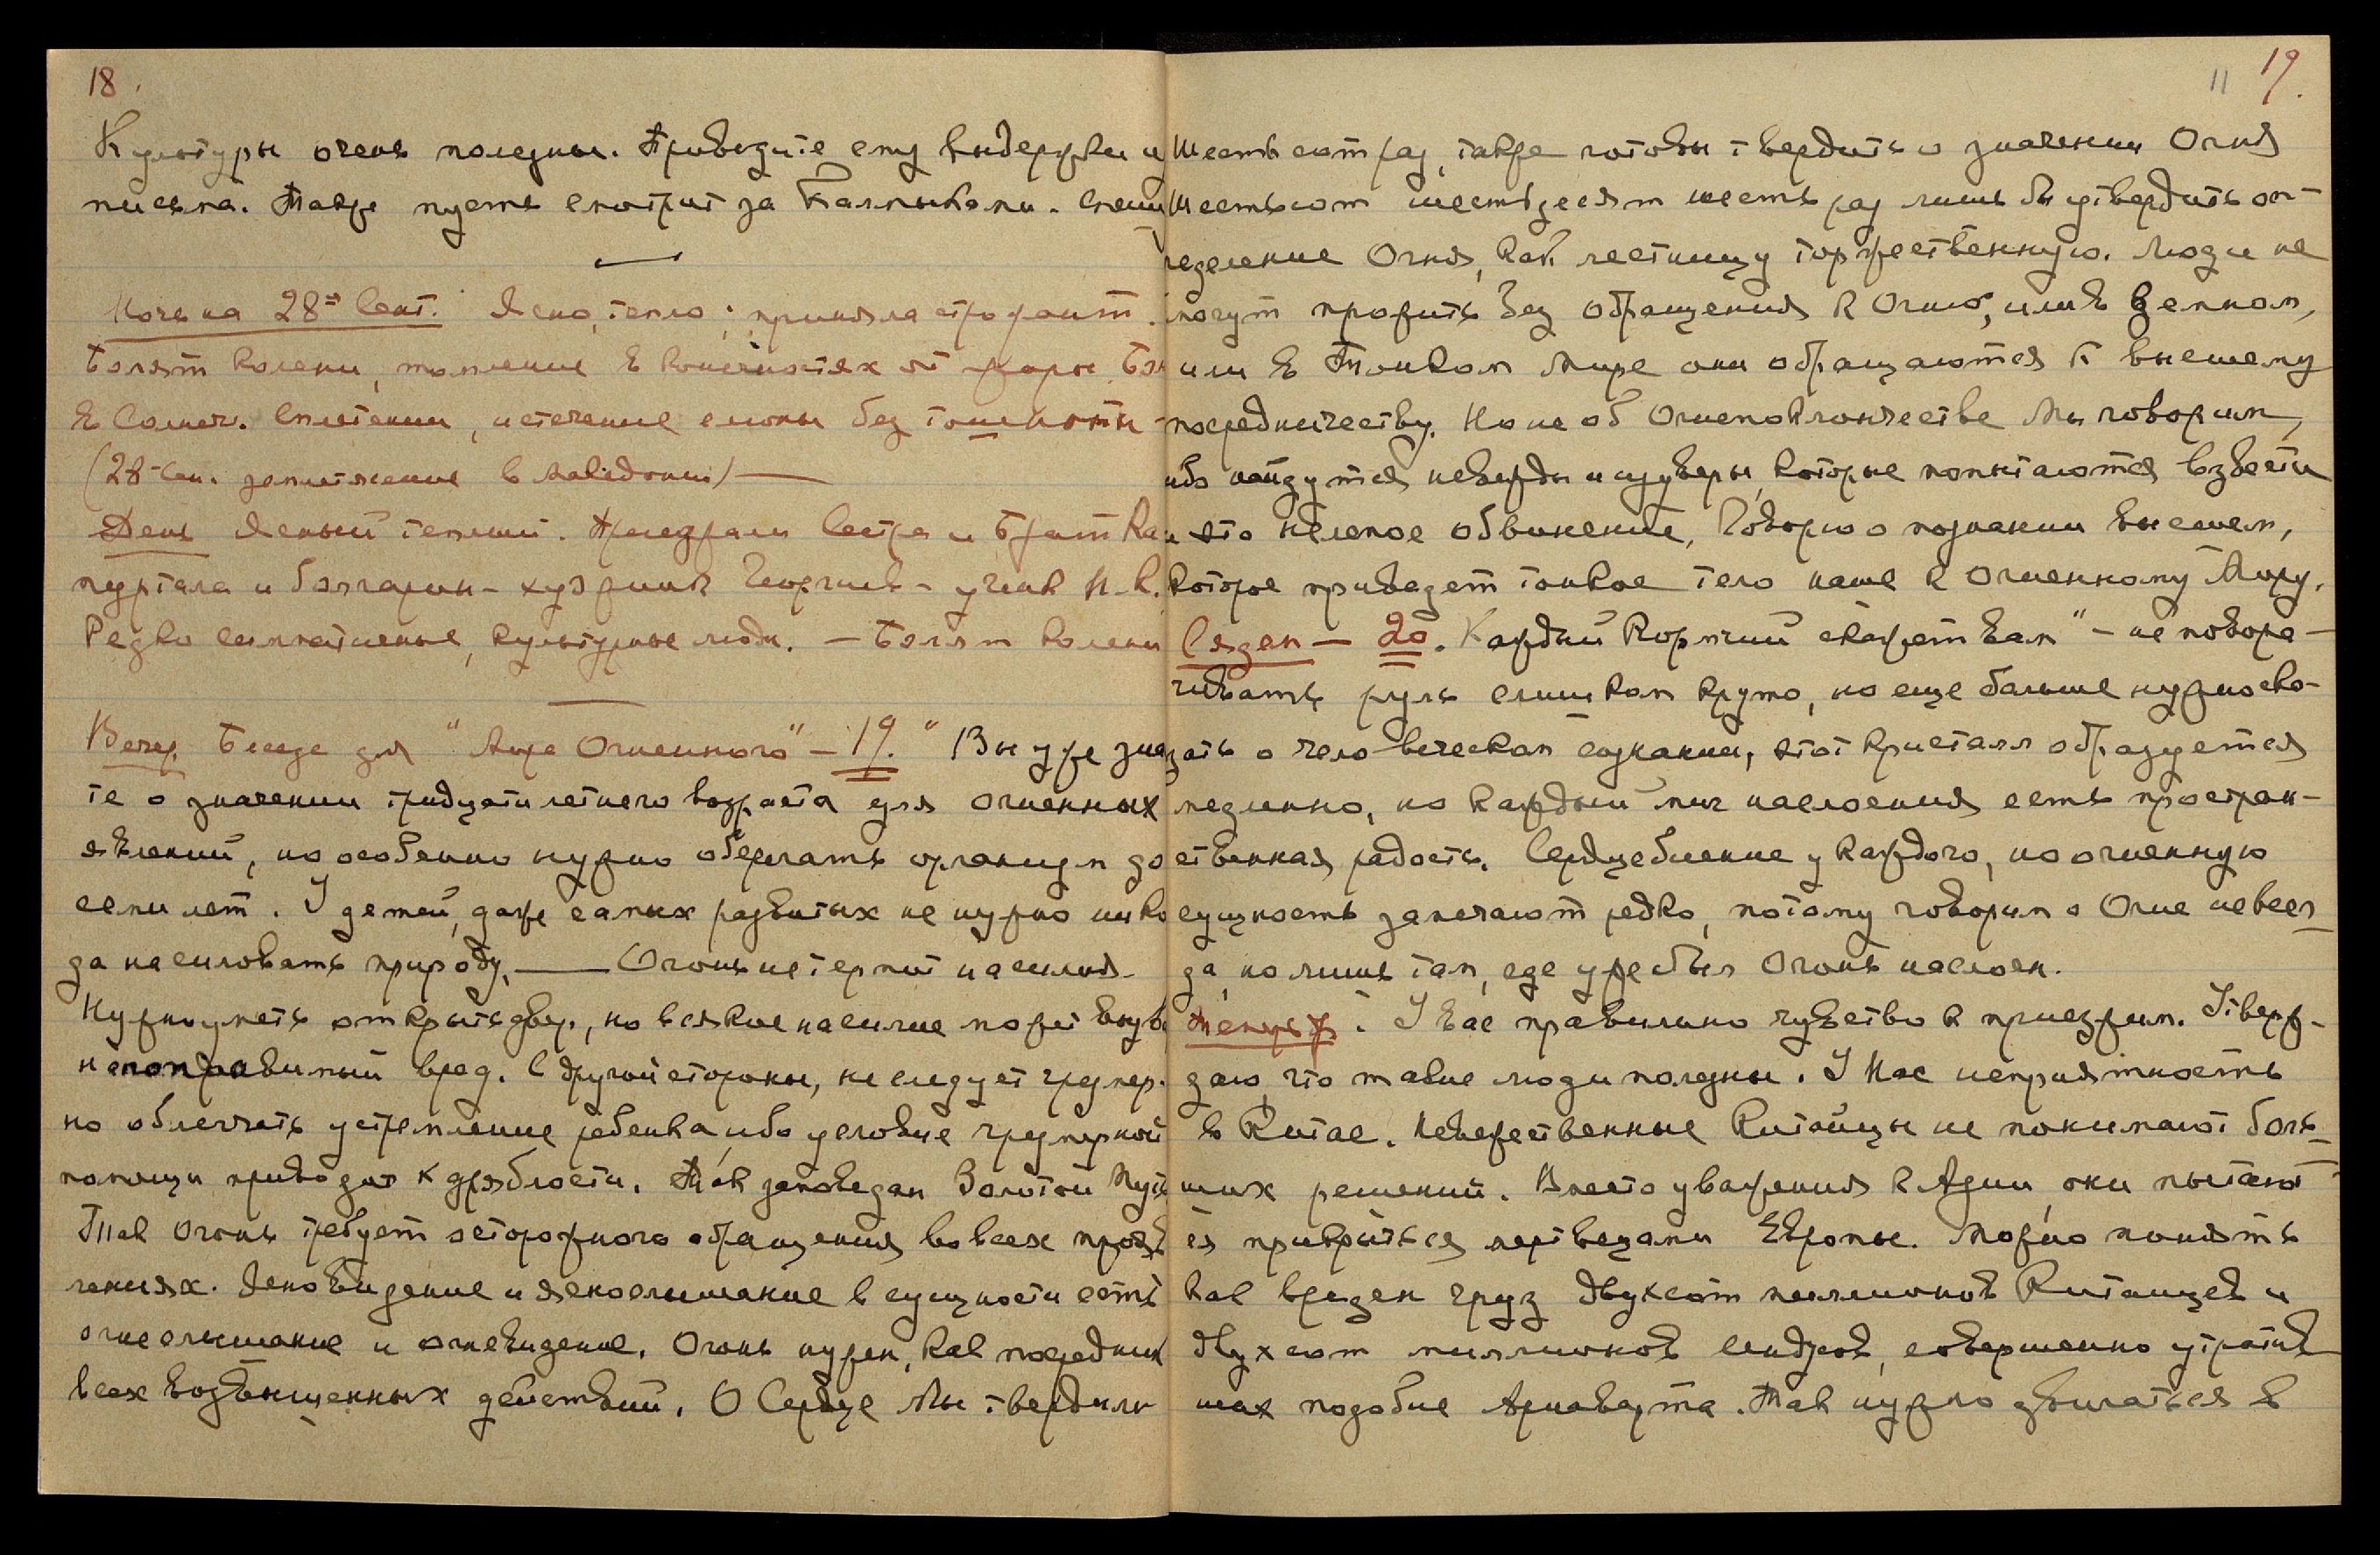 18.
Культуры очень полезны. Приведите ему выдержки и
письма. Также пусть смотрит за Калмыками.
Ночь на 28ое Сент. Ясно, тепло; приняла строфант.
Болят колени, томление в конечностях от жары.
В Солнеч. сплетении, истечение слюны без тошноты -
(28-Сен. землетясение в Македонии) —
День Ясный теплый. Приезжали Сестра и Брат
и болгарин - художник Георгиев - ученик Н.К.
Редко симпатичные, культурные люди. — Болят колени
Вечер. Беседа для "Мира Огненного" - 19. "Вы уже знае
те о значении тридцатилетнего возраста для огненных
явлений, но особенно нужно оберегать организм до
семи лет. У детей, даже самых развитых не нужно нико
гда насиловать природу, — Огонь не терпит насилия.
Нужно уметь открыть дверь, но всякое насилие может
непоправимый вред. С другой стороны, не следует чрезмер-
но облегчать устремление ребенка, ибо условие чрезмерной
помощи приводит к дряблости. Так заповедан Золотой Путь
Так Огонь требует осторожного обращения во всех прояв
лениях. Ясновидение и яснослышание в сущности есть
огнеслышание и огневидение. Огонь нужен, как посредник
всех возвышенных действий. О Сердце Мы твердили
11 19.
Шестьсот раз, также готовы твердить о значении Огня
Шестьсот шестьдесят шесть раз лишь бы утвердить оп-
ределение Огня, как лестницу торжественную. Люди не
могут прожить без обращения к Огню, или в земном,
или в Тонком Мире они обращаются к высшему
посредничеству. Но не об Огнепоклончестве Мы говорим,
ибо найдутся невежды и изуверы, которые попытаются взвести
и это нелепое обвинение, Говорю о познании высшем,
которое приведет тонкое тело наше к Огненному Миру.
20. Каждый Кормчий скажет вам" - не повора-
чивать руль слишком круто, но еще больше нужно ска-
зать о человеческом сознании, этот кристалл образуется
медленно, но каждый миг наслоения есть простран-
ственная радость. Сердцебиение у каждого, но огненную
сущность замечают редко, потому говорим о Огне не всег-
да, но лишь там, где уже был Огонь наслоен.
У вас правильно чувство к приезжим. Утверж-
даю, что такие люди полезны. У Нас неприятность
в Китае. Невежественные Китайцы не понимают боль-
ших решений. Вместо уважения к Азии, они пытают
ся прикрыться мертвецами Европы. Можно понять
как вреден груз двухсот миллионов Китайцев и
двухсот миллионов Синдхов, совершенно утратив
ших подобие Ариаварта. Так нужно двигаться в